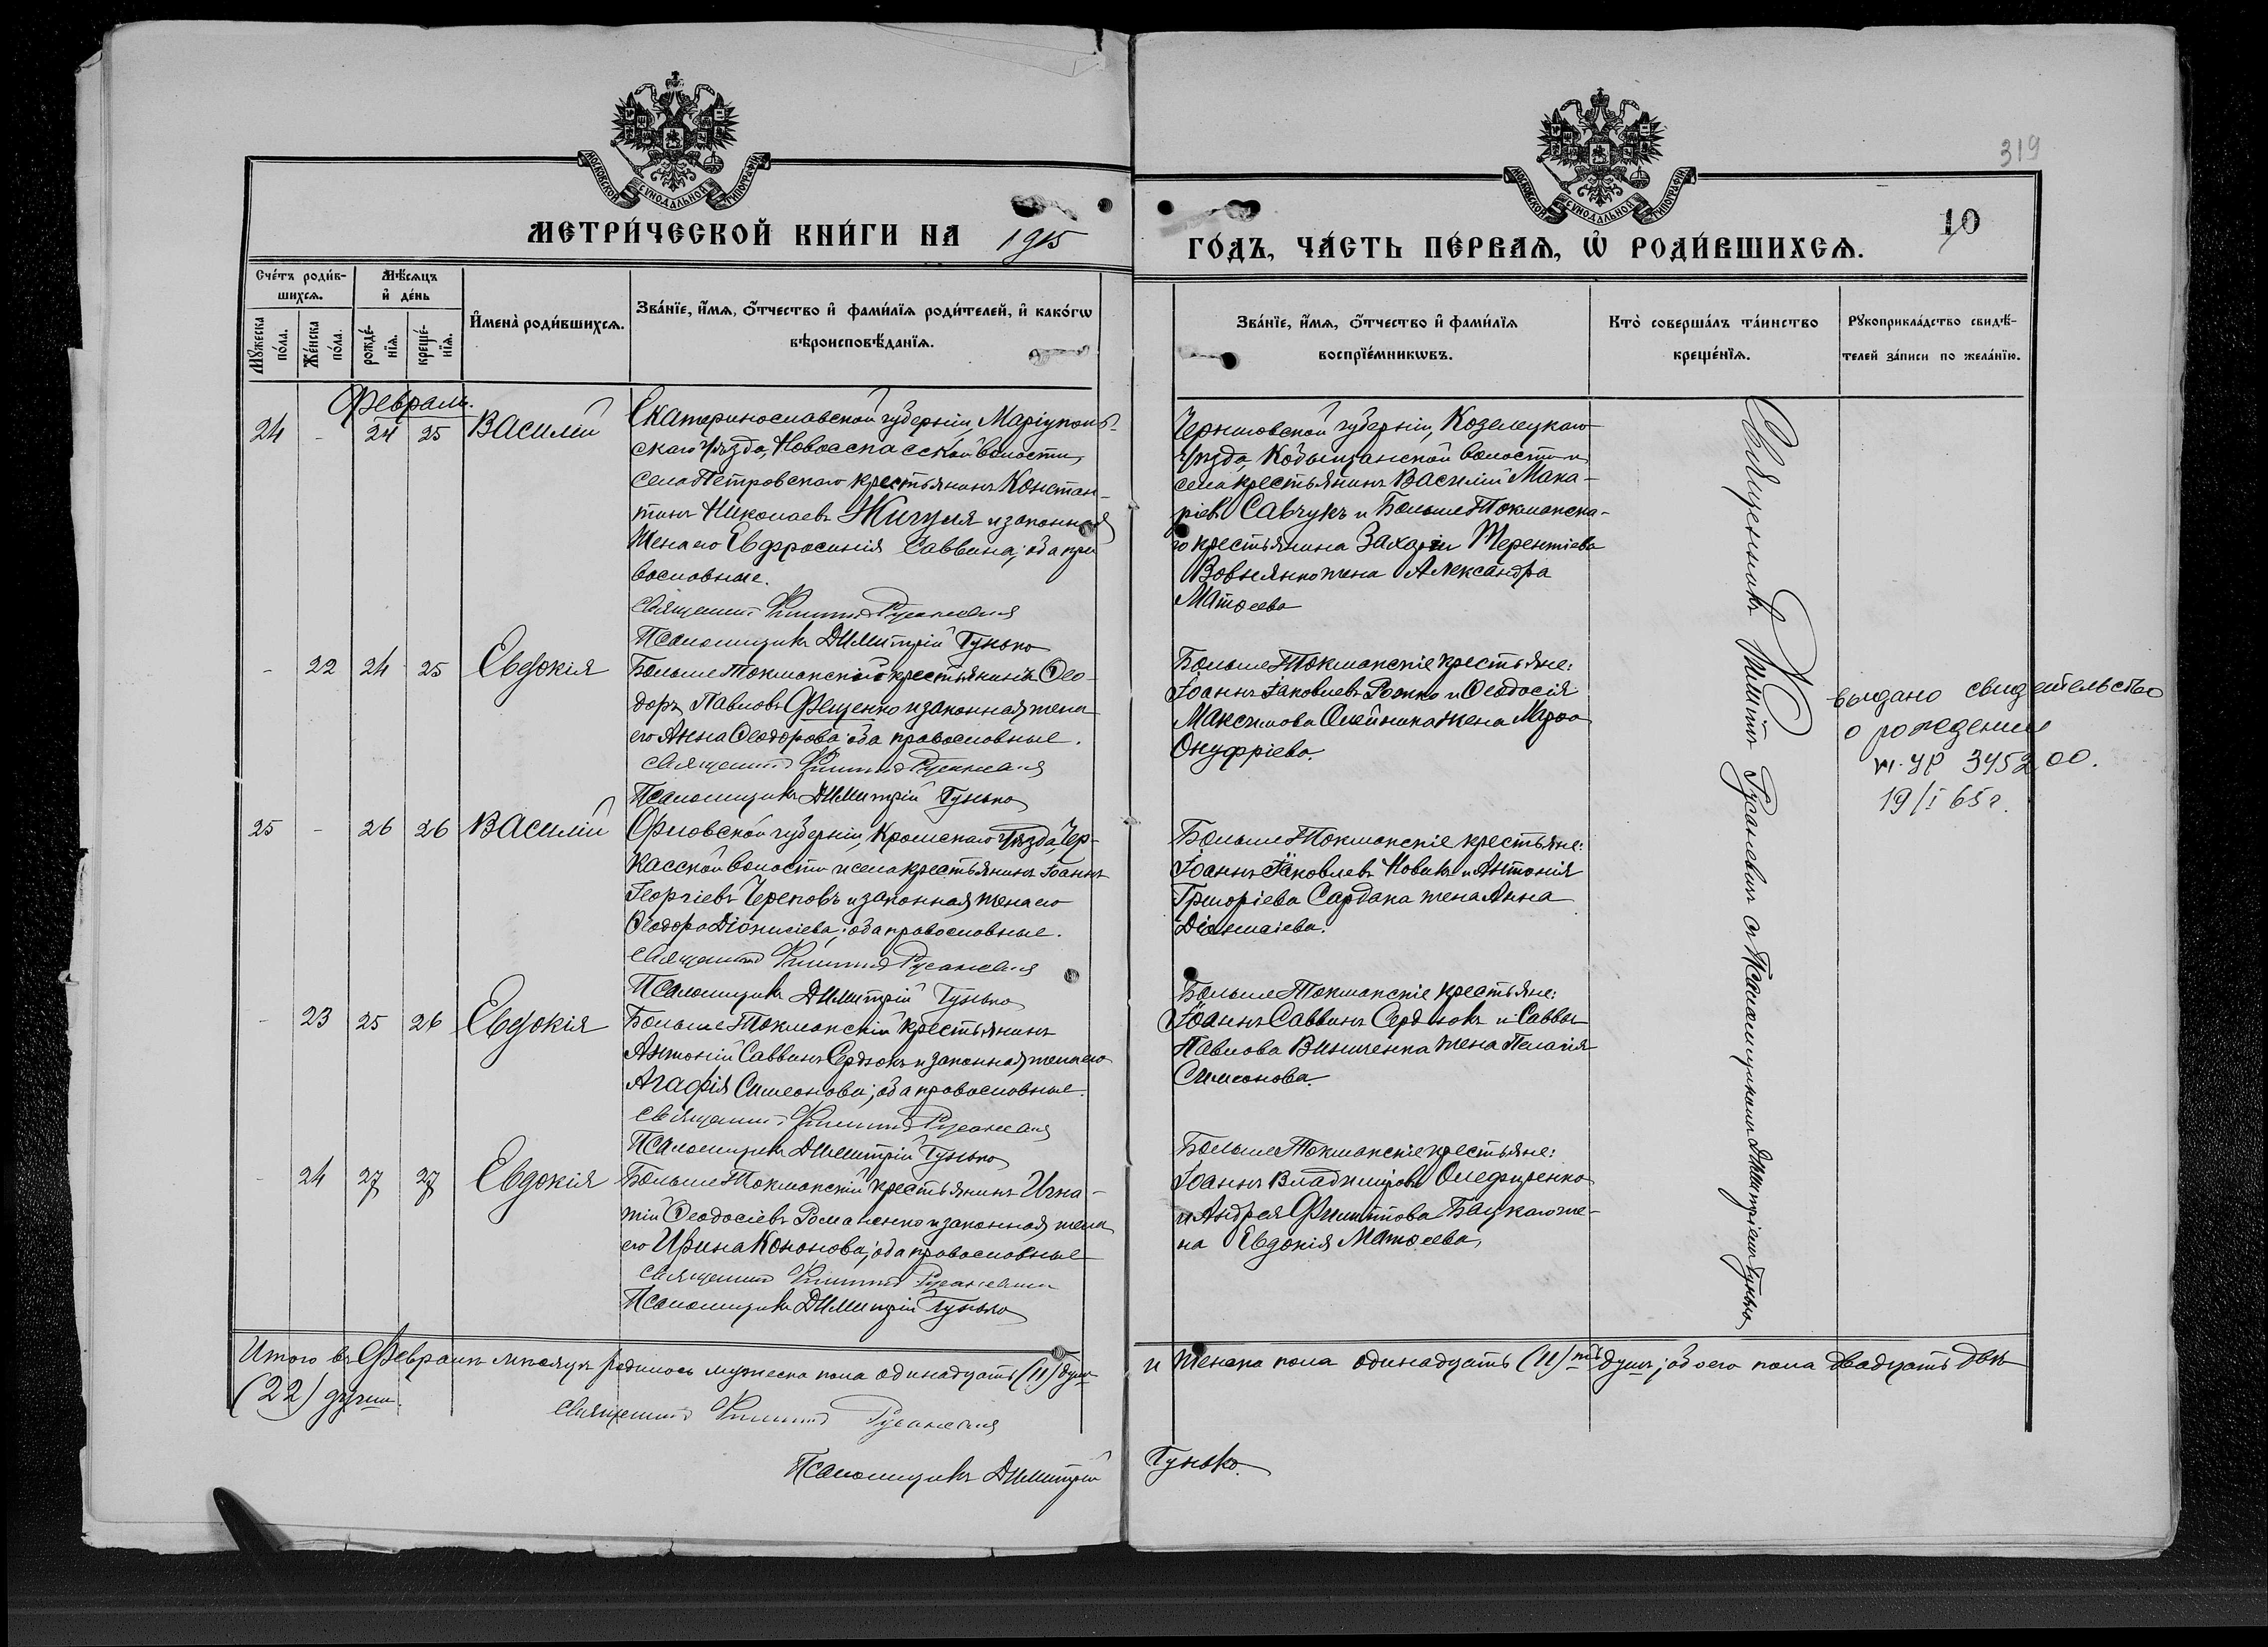 319
10
МОСКОВСКОЙ СѴНОДАЛЬНОЙ ТИПОГРАФІИ
МОСКОВСКОЙ СѴНОДАЛЬНОЙ ТИПОГРАФІИ
МЕТРИ́ЧЕСКОЙ КНИ́ГИ НА 1915
ГО́ДЪ, ЧА́СТЬ ПЕ́РВАѦ, Ѡ҆ РОДИ́ВШИХСѦ.
Сче́тъ роди́в-
шихсѧ.
Мѣ́сѧцъ
и҆ де́нь
Мꙋ́жеска
по́ла.
Же́нска
по́ла.
рожде́-
нїѧ.
креще́-
нїѧ.
И҆мена̀ роди́вшихсѧ.
Зва́нїе, и҆́мѧ, ѻ҆́тчество и҆ фами́лїѧ роди́телей, и҆ како́гѡ
вѣроисповѣ́данїѧ.
Зва́нїе, и҆́мѧ, ѻ҆́тчество и҆ фами́лїѧ
воспрїе́мникѡвъ.
Кто̀ соверша́лъ та́инство
креще́нїѧ.
Рꙋкоприкла́дство свидѣ́-
телей за́писи по жела́нїю.
Февраль.
24 - 24 25 Василій
Екатеринославской губерніи, Маріуполь-
скаго уѣзда, Новоспасской волости,
села Петровскаго крестьянинъ Констан-
тинъ Николаевъ Жигуля и законная
жена его Евфросинія Саввина; оба пра
вославные.
Священникъ Филиппъ Русаневичъ
Псаломщикъ Димитрій Гунько
Черниговской губерніи, Козелецкаго
уѣзда, Кобыжчанской волости и
села крестьянинъ Василій Мака-
ріевъ Савчукъ и Больше Токмакска-
го крестьянина Захаріи Терентіева
жена Александра
Матѳеева
- 22 24 25 Евдокія
Больше Токмакскій крестьянинъ Ѳео-
доръ Павловъ Фещенко и законная жена
его Анна Ѳеодорова; оба православные.
Священникъ Филиппъ Русаневичъ
Псаломщикъ Димитрій Гунько
Больше Токмакскіе крестьяне:
Іоаннъ Іаковлевъ и Ѳеодосія
Максимова Олейника жена Марѳа
Онуфріева.
выдано свидетельство
о рождении
345200.
19/I 65 г.
25 - 26 26 Василій
Орловской губерніи, Кромскаго уѣзда, Чер-
касской волости и села крестьянинъ Іоаннъ
Георгіевъ Череповъ и законная жена его
Ѳеодора Діонисіева; оба православные.
Священникъ Филиппъ Русаневичъ
Псаломщикъ Димитрій Гунько
Больше Токмакскіе крестьяне:
Іоаннъ Іаковлевъ Новикъ и Антонія
Григоріева Сардака жена Анна
- 23 25 26 Евдокія
Больше Токмакскій крестьянинъ
Антоній Саввинъ Сердюкъ и законная жена его
Агафія Симеонова; оба православные.
Священникъ Филиппъ Русаневичъ
Псаломщикъ Димитрій Гунько
Больше Токмакскіе крестьяне:
Іоаннъ Саввинъ Сердюкъ и Саввы
Павлова Винниченка жена Пелагія
Симеонова.
- 24 27 27 Евдокія
Больше Токмакскій крестьянинъ Игна-
тій Ѳеодосіевъ Романенко и законная жена
его Ирина Кононова; оба православные
Священникъ Филиппъ Русаневичъ
Псаломщикъ Димитрій Гунько
Больше Токмакскіе крестьяне:
Іоаннъ Владиміровъ Олефиренко
и Андрея Филиппова Бацкаго же-
на Евдокія Матѳеева,
Священникъ Филиппъ Русаневичъ съ Псаломщикомъ Димитріемъ Гунько
Итого въ Февралѣ мѣсяцѣ родилось мужеска пола одинадцать (11) душъ
и женска пола одинадцать (11)-ть душъ; обоего пола двадцать двѣ
(22) души.
Священникъ Филиппъ Русаневичъ
Псаломщикъ Димитрій Гунько.